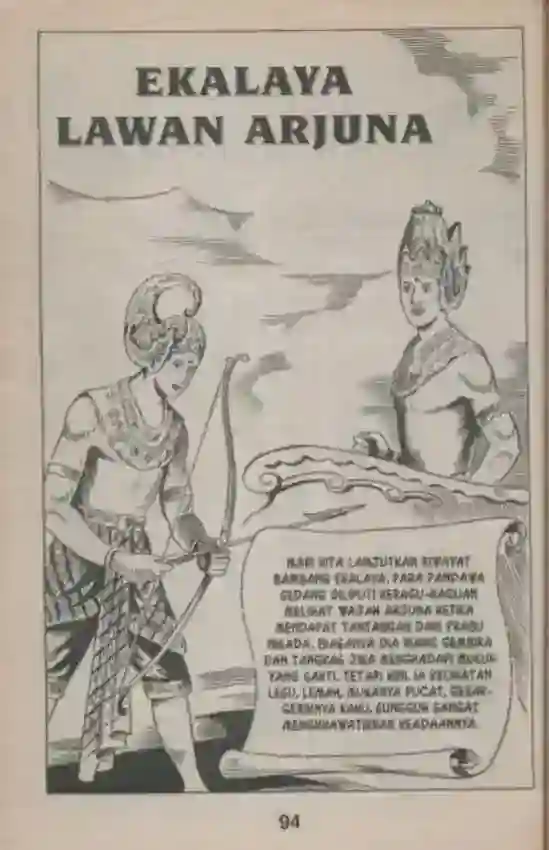 EKALAYA
LAWAN ARJUNA
MARI KITA LANJUTKAN RIWAYAT
BAMBANG EKALAYA. PARA PANDAWA
SEDANG DILIPUTI KERAGU-RAGUAN
MELIHAT WAJAH ARJUNA KETIKA
MENDAPAT TANTANGAN DARI PRABU
NISADA. BIASANYA DIA RIANG GEMBIRA
DAN TANGKAS JIKA MENGHADAPI MUSUH
YANG SAKTI. TETAPI KINI, IA KELIHATAN
LESU, LEMAH, MUKANYA PUCAT, GERAK-
GERIKNYA KAKU. SUNGGUH SANGAT
MENGKHAWATIRKAN KEADAANNYA.
94